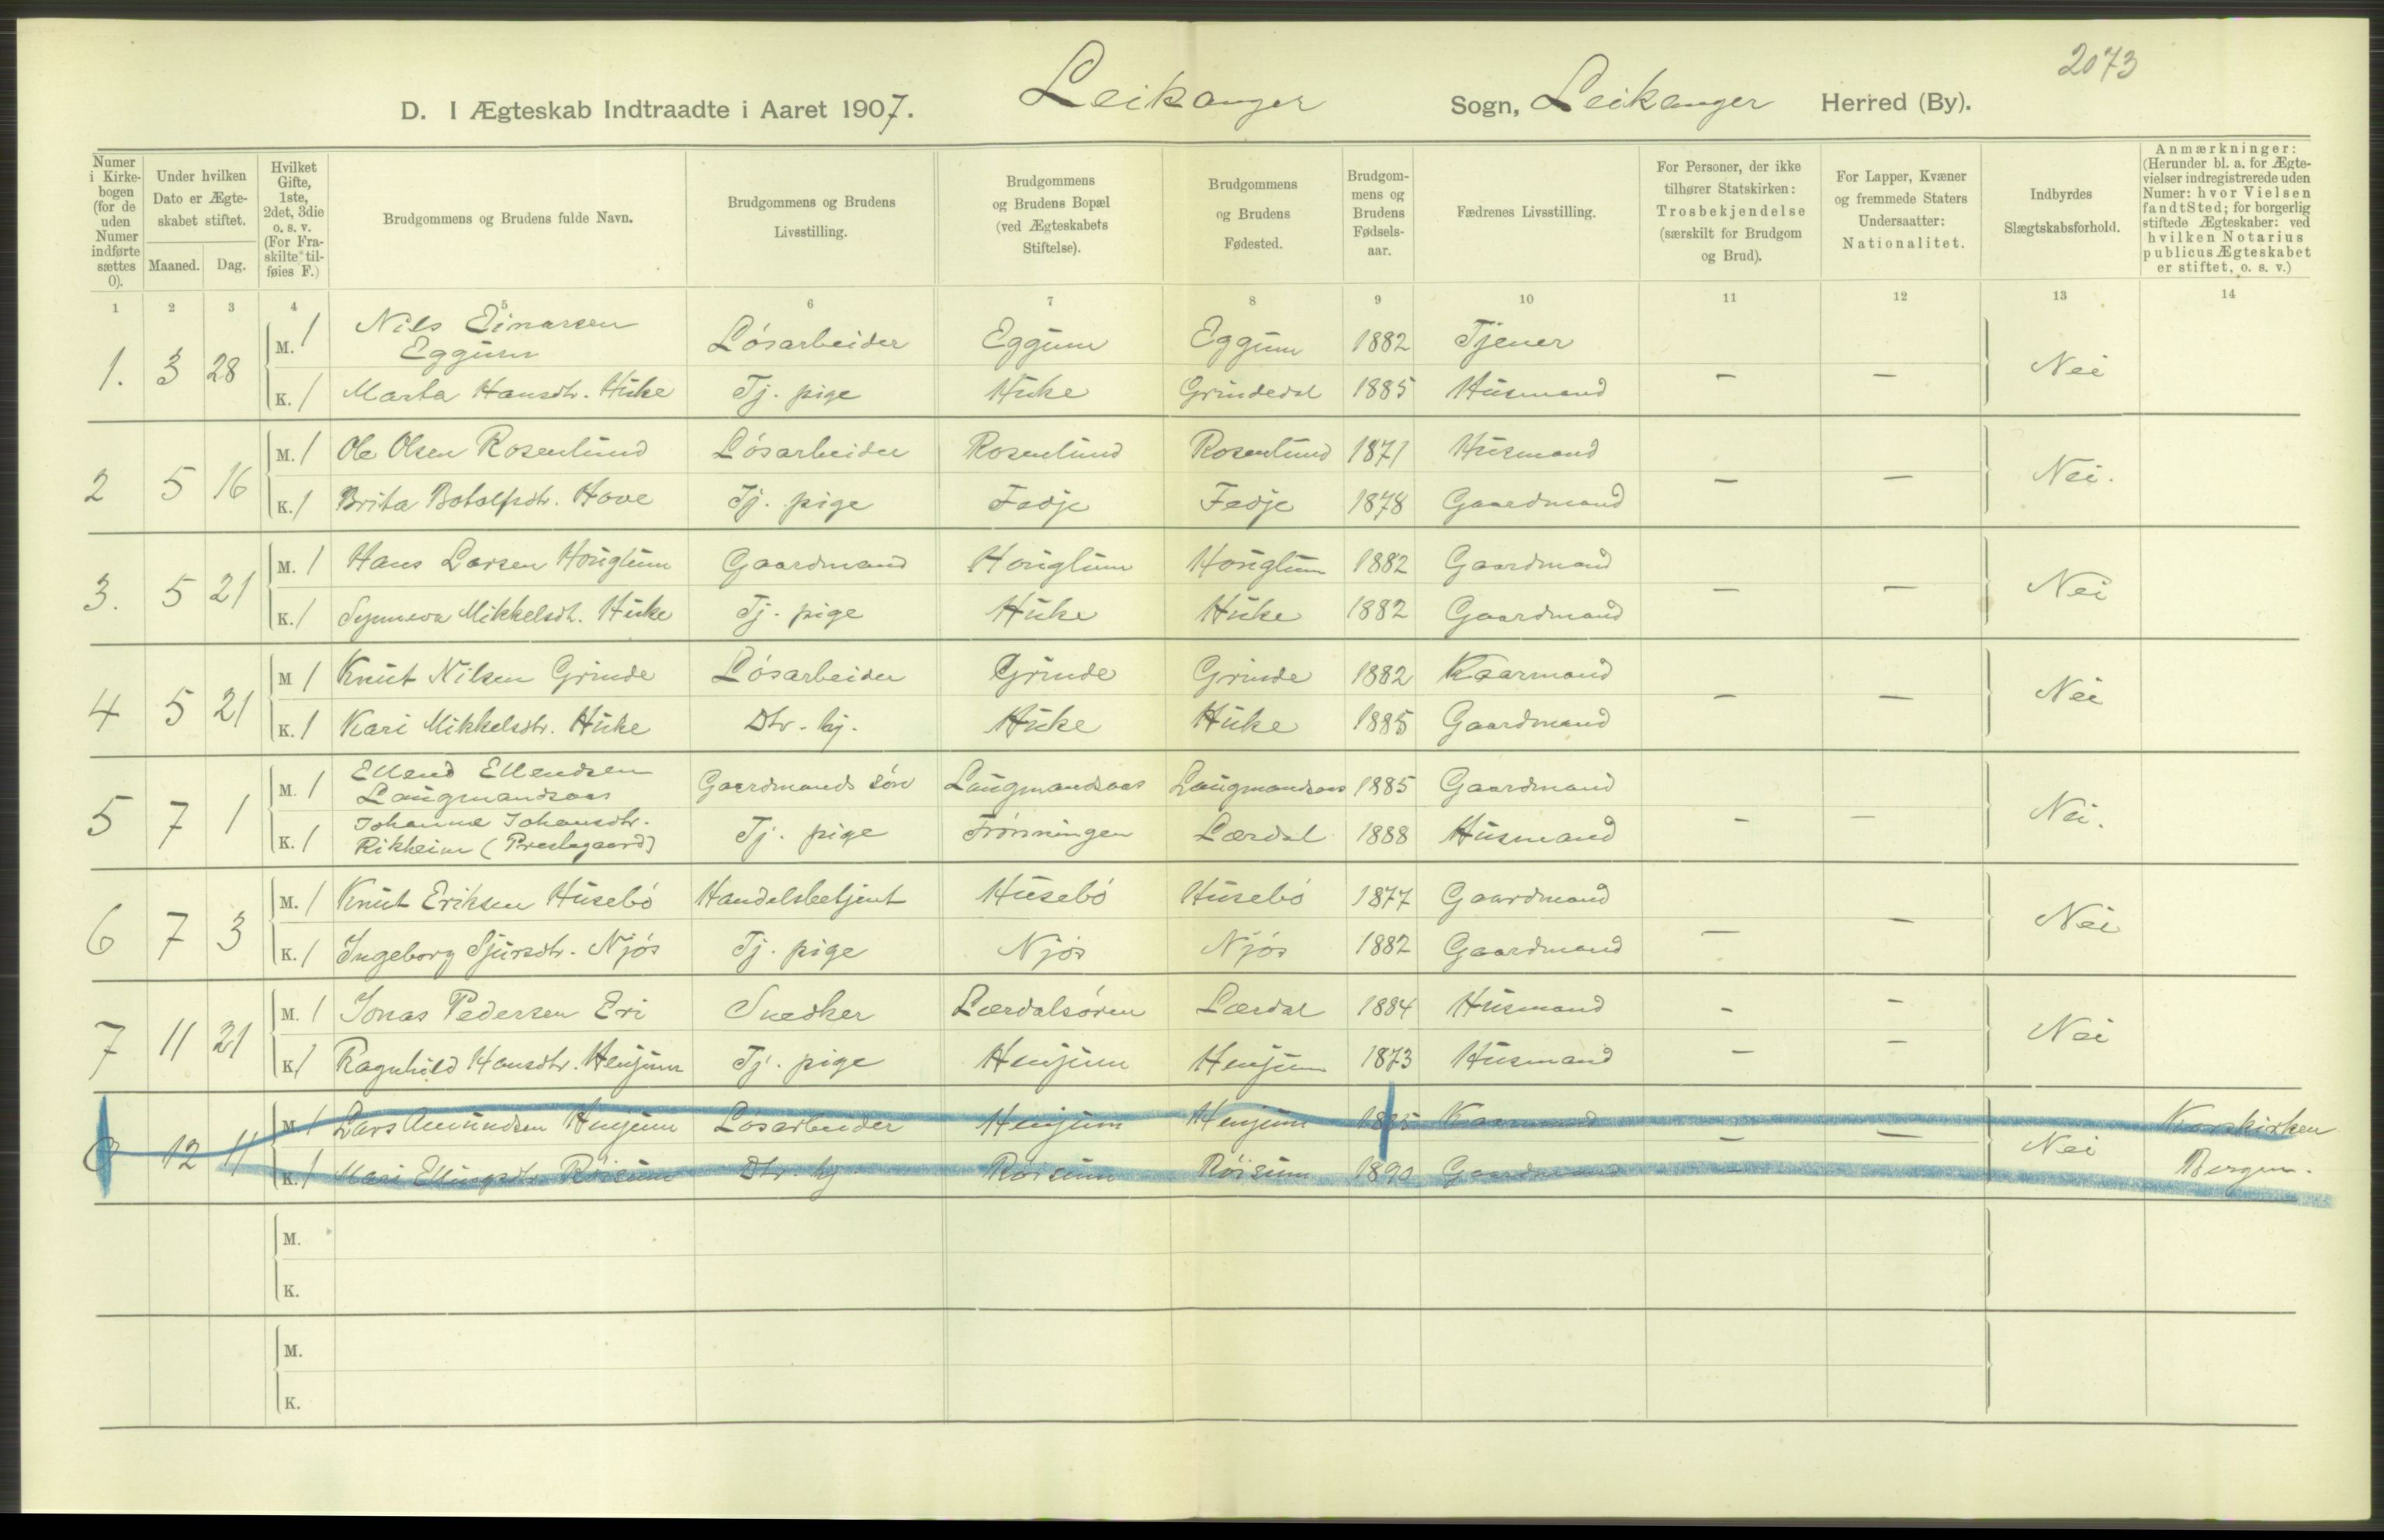 2073
D. I Ægteskab Indtraadte i Aaret 1907. Leikanger Sogn, Leikanger Herred (By).
Numer i Kirkebogen (for de uden Numer indførte sættes 0).
Under hvilken Dato er Ægteskabet stiftet.
Maaned. Dag.
Hvilket Gifte, 1ste, 2det, 3die o. s. v. (For Fraskilte tilføies F.)
Brudgommens og Brudens fulde Navn.
Brudgommens og Brudens Livsstilling.
Brudgommens og Brudens Bopæl (ved Ægteskabets Stiftelse).
Brudgommens og Brudens Fødested.
Brudgommens og Brudens Fødselsaar.
Fædrenes Livsstilling.
For Personer, der ikke tilhører Statskirken: Trosbekjendelse (særskilt for Brudgom og Brud).
For Lapper, Kvæner og fremmede Staters Undersaatter: Nationalitet.
Indbyrdes Slægtskabsforhold.
Anmærkninger: (Herunder bl. a. for Ægtevielser indregistrerede uden Numer: hvor Vielsen fandt Sted; for borgerlig stiftede Ægteskaber: ved hvilken Notarius publicus Ægteskabet er stiftet, o. s. v.)
1 2 3 4 5 6 7 8 9 10 11 12 13 14
1. 3 28 M. 1 Nils Einarsen Eggum Løsarbeider Eggum Eggum 1882 Tjener Nei
K. 1 Marta Hansdtr. Huke Tj. pige Huke Grindedal 1885 Husmand — —
2 5 16 M. 1 Ole Olsen Rosenlund Løsarbeider Rosenlund Rosenlund 1871 Husmand — — Nei.
K. 1 Brita Botolfsdtr. Hove Tj. pige Fedje Fedje 1878 Gaardmand
3. 5 21 M. 1 Hans Larsen Houglum Gaardmand Houglum Houglum 1882 Gaardmand — — Nei
K. 1 Synneva Mikkelsdt. Huke Tj. pige Huke Huke 1882 Gaardmand
4 5 21 M 1 Knut Nilsen Grinde Løsarbeider Grinde Grinde 1882 Kaarmand — — Nei
K. 1 Kari Mikkelsdtr. Huke Dtr. hj. Huke Huke 1885 Gaardmand
5 7 1 M. 1 Ellend Ellendsen Laugmandsaas Gaardmands søn Laugmandsaas Laugmandsaas 1885 Gaardmand Nei.
K. 1 Johanne Johansdtr. Rikheim (Prestegaard) Tj. pige Frønningen Lærdal 1888 Husmand — —
6 7 3 M. 1 Knut Eriksen Husebø Handelsbetjent Husebø Husebø 1877 Gaardmand — Nei
K. 1 Ingeborg Sjursdtr. Njøs Tj. pige Njøs Njøs 1882 Gaardmand —
7 11 21 M. 1 Jonas Pedersen Eri Snedker Lærdalsøren Lærdal 1884 Husmand — — Nei
K 1 Ragnhild Hansdtr. Henjum Tj. pige Henjum Henjum 1873 Husmand — —
0 12 11 M 1 Lars Amundsen Henjum Løsarbeider Henjum Henjum 1885 Kaarmand — — Nei Korskirken
K. 1 Mari Ellingsdtr. Røisum Dtr. hj. Røisum Røisum 1890 Gaardmand — Bergen.
M.
K.
M.
K.